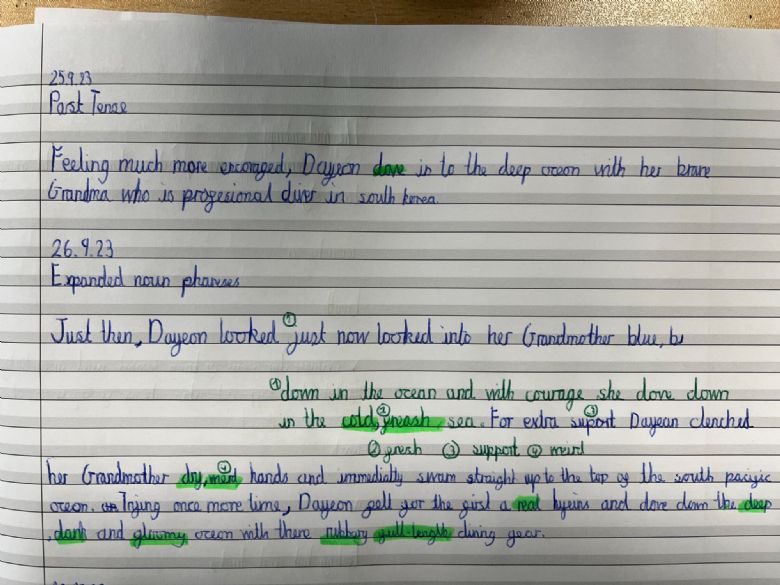 25.9.23
Past Tense
Feeling much more encoraged, Dayeon dove in to the deep ocean with her brave
Grandma who is profesional diver in south korea.
26.9.23
Expanded noun pharses
Just then, Dayeon looked ① just now looked into her Grandmother blue, b
① down in the ocean and with courage she dove down
in the cold, ② freash, sea. For extra suport ③ Dayeon clenched
② fresh ③ support ④ weird
her Grandmother dry, ④ hands and immediatly swam straight up to the top of the south pacific
ocean. Trying once more time, Dayeon fell for the first a real hyeins and dove down the deep
, dark and gloumy ocean with there rubbery full-length diving gear.